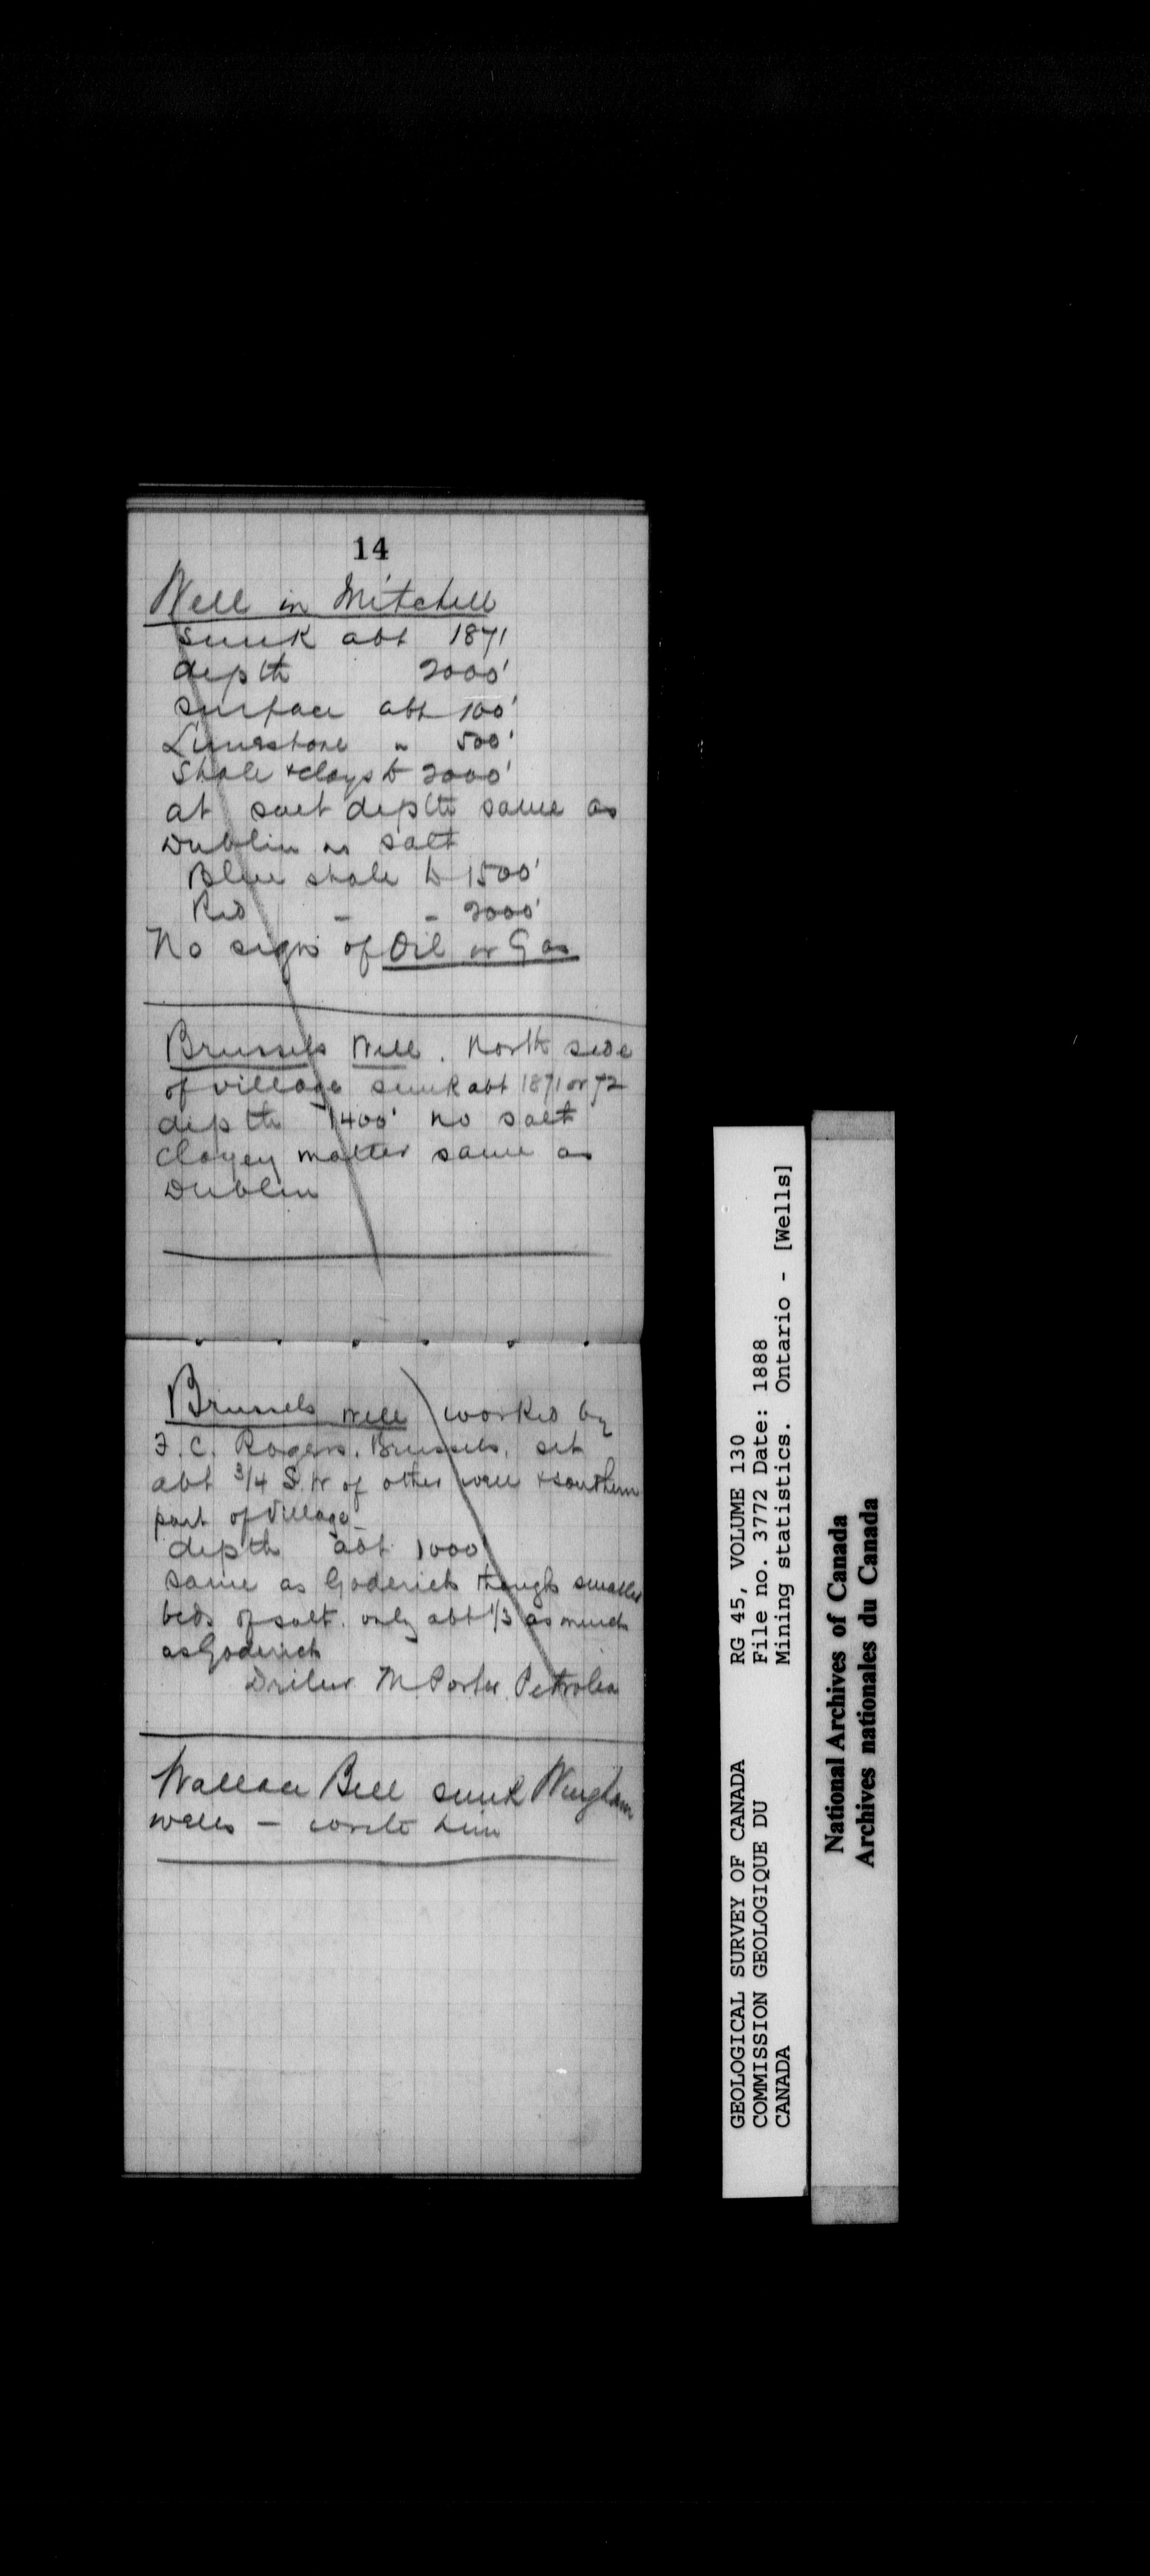 14
Well in Mitchell
sunk abt 1871
depth 2000'
surface abt 100'
Limestone " 500'
Shale & clays to 2000'
at salt depth same as
Dublin no salt
Blue shale to 1500'
Red - - 2000'
No signs of Oil or Gas
Brussels Well. North side
of village sunk abt 1871 or 72
depth 1400' no salt
Clayey matter same as
Dublin
Brussels well worked by
F. C. Rogers. Brussels.
abt 3/4 S.W of other well & southern
part of Village
depth abt 1000'
same as Goderich though smaller
beds of salt. only abt 1/3 as much
as Goderich
Driller Porter Petrolia
Wallace Bell sunk Wingham
wells - write him
GEOLOGICAL SURVEY OF CANADA RG 45, VOLUME 130
COMMISSION GEOLOGIQUE DU File no. 3772 Date: 1888
CANADA Mining statistics. Ontario - [Wells]
National Archives of Canada
Archives nationales du Canada